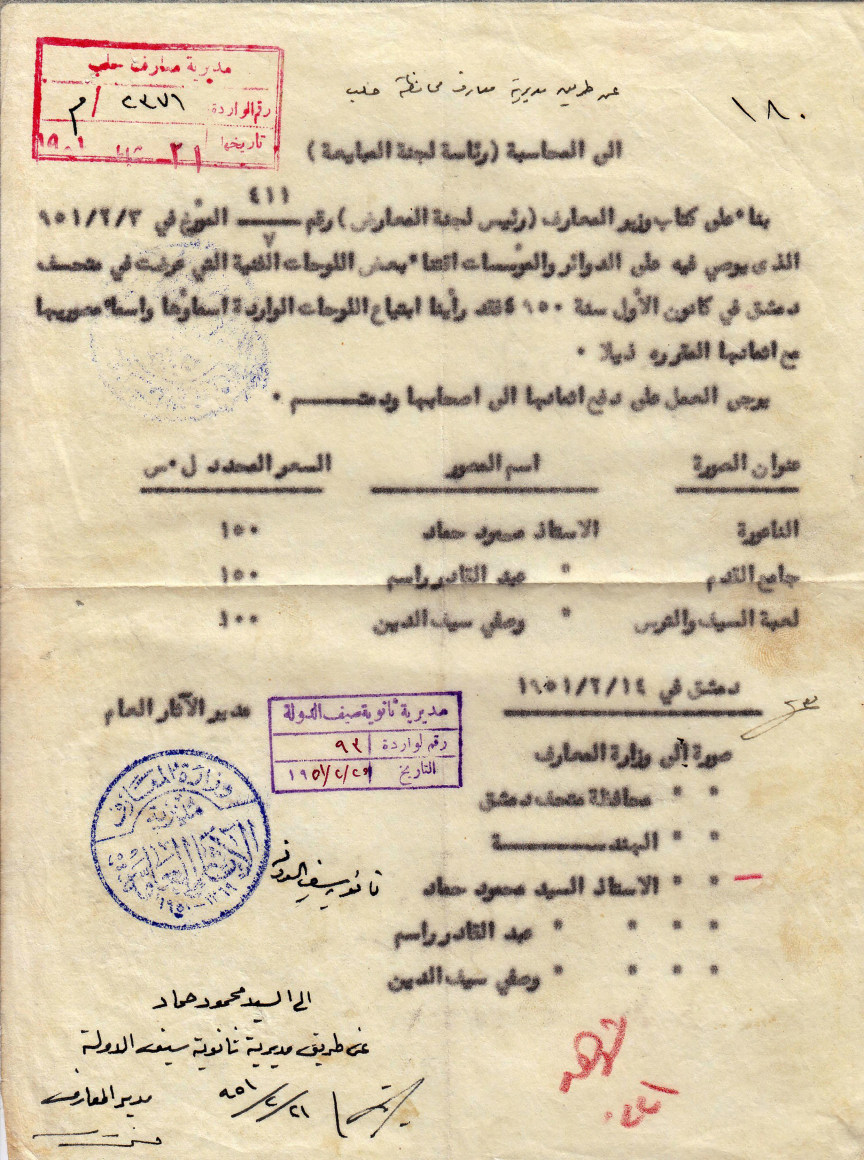 مديرية معارف حلب
رقم الواردة ٢٣٧١ / م
تاريخها ٢١
عن طريق مديرية معارف محافظة حلب
١٨٠
الى المحاسبة ( رئاسة لجنة المبايعة )
بناء على كتاب وزير المعارف ( رئيس لجنة المعارض ) رقم ٤١١/٧ المؤرخ في ٩٥١/٢/٣
الذي يوصي فيه على الدوائر والمؤسسات اقتناء بعض اللوحات الفنية التي عرضت في متحف
دمشق في كانون الأول سنة ٩٥٠ فقد رأينا ابتياع اللوحات الواردة اسماؤها واسماء مصوريها
مع اثمانها المقرره ذيلا ٠
يرجى العمل على دفع اثمانها الى اصحابها ودمتــــم ٠
عنوان الصورة اسم المصور السعر المحدد ل ٠س
الناعورة الاستاذ محمود حماد ١٥٠
جامع القدم " عبد القادر راسم ١٥٠
لعبة السيف والترس " وصفي سيف الدين ١٠٠
دمشق في ١٩٥١/٢/١٤
مدير الآثار العام
مديرية ثانوية سيف الدولة
رقم لواردة ٩٣
التاريخ ١٩٥١/٢/٢٥
صورة إلى وزارة المعارف
" " محافظة متحف دمشق
" " البنـــــــــــة
" " الاستاذ السيد محمود حماد
" " " " عبد القادر راسم
" " " " وصفي سيف الدين
وزارة المعارف
مديرية
الآثار العامة
١٣٦٩-١٩٥٠
ثانوية سيف الدولة
الى السيد محمود حماد
عن طريق مديرية ثانوية سيف الدولة
٩٥١/٢/٢١ مدير المعارف